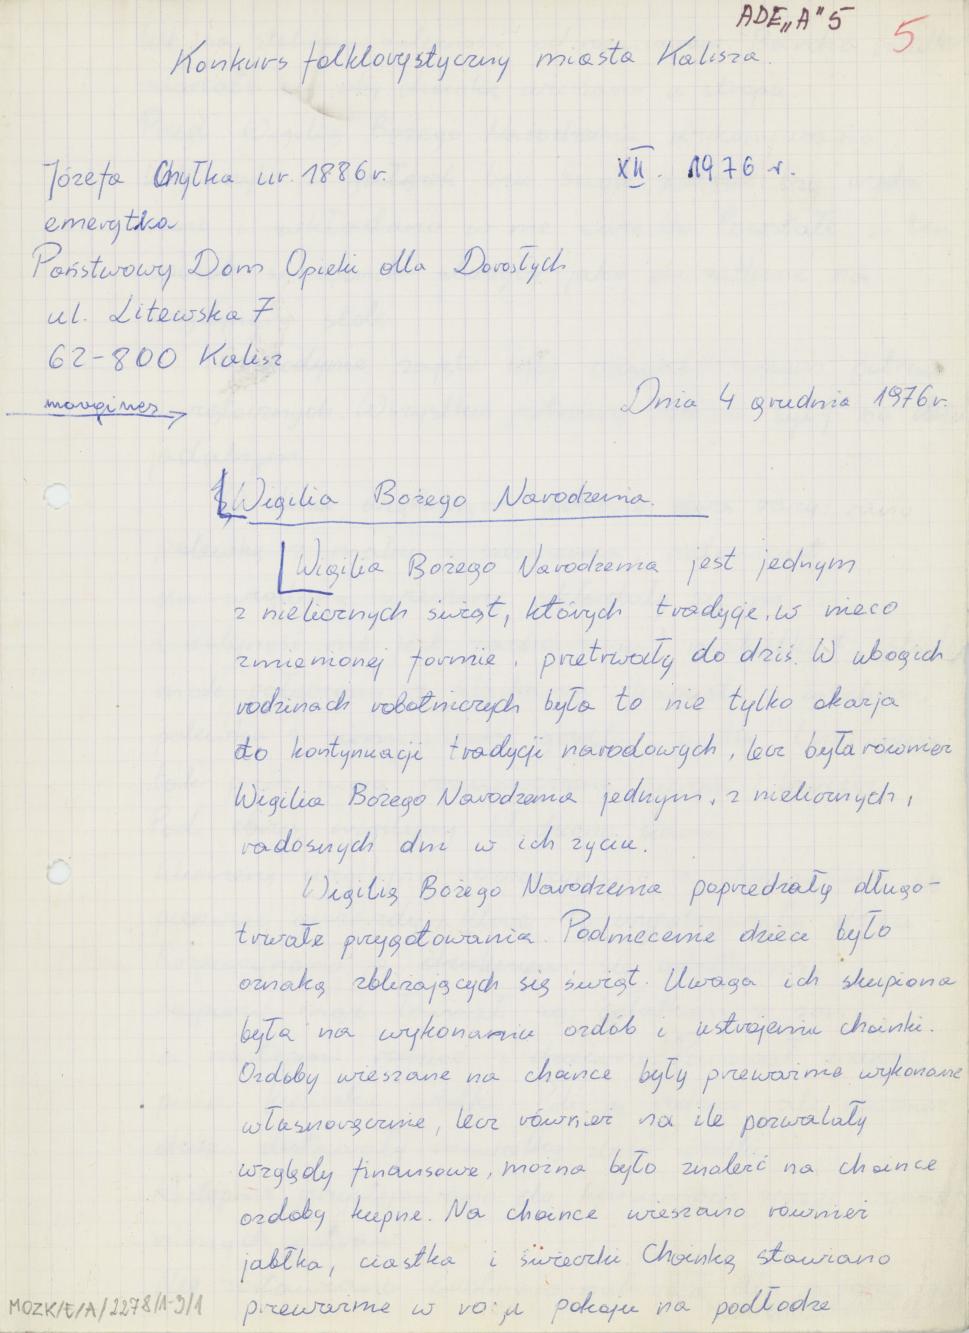 ADE„A" 5
5
Konkurs folklorystyczny miasta Kalisza.
Józefa Chyłka ur. 1886r.
XII. 1976 r.
emerytka
Państwowy Dom Opieki dla Dorosłych
ul. Litewska 7
62-800 Kalisz
margines
Dnia 4 grudnia 1976r.
Wigilia Bożego Narodzenia.
Wigilia Bożego Narodzenia jest jednym
z nielicznych świąt, których tradycje, w nieco
zmienionej formie, przetrwały do dziś. W ubogich
rodzinach robotniczych była to nie tylko okazja
do kontynuacji tradycji narodowych, lecz była również
Wigilia Bożego Narodzenia jednym, z nielicznych,
radosnych dni w ich życiu.
Wigilię Bożego Narodzenia poprzedzały długo-
trwałe przygotowania. Podniecenie dzieci było
oznaką zbliżających się świąt. Uwaga ich skupiona
była na wykonaniu ozdób i ustrojeniu choinki.
Ozdoby wieszane na choince były przeważnie wykonane
własnoręcznie, lecz również na ile pozwalały
względy finansowe, można było znaleźć na choince
ozdoby kupne. Na choince wieszano również
jabłka, ciastka i świeczki. Choinkę stawiano
przeważnie w rogu pokoju na podłodze
MOZK/E/A/2278/1-9/1